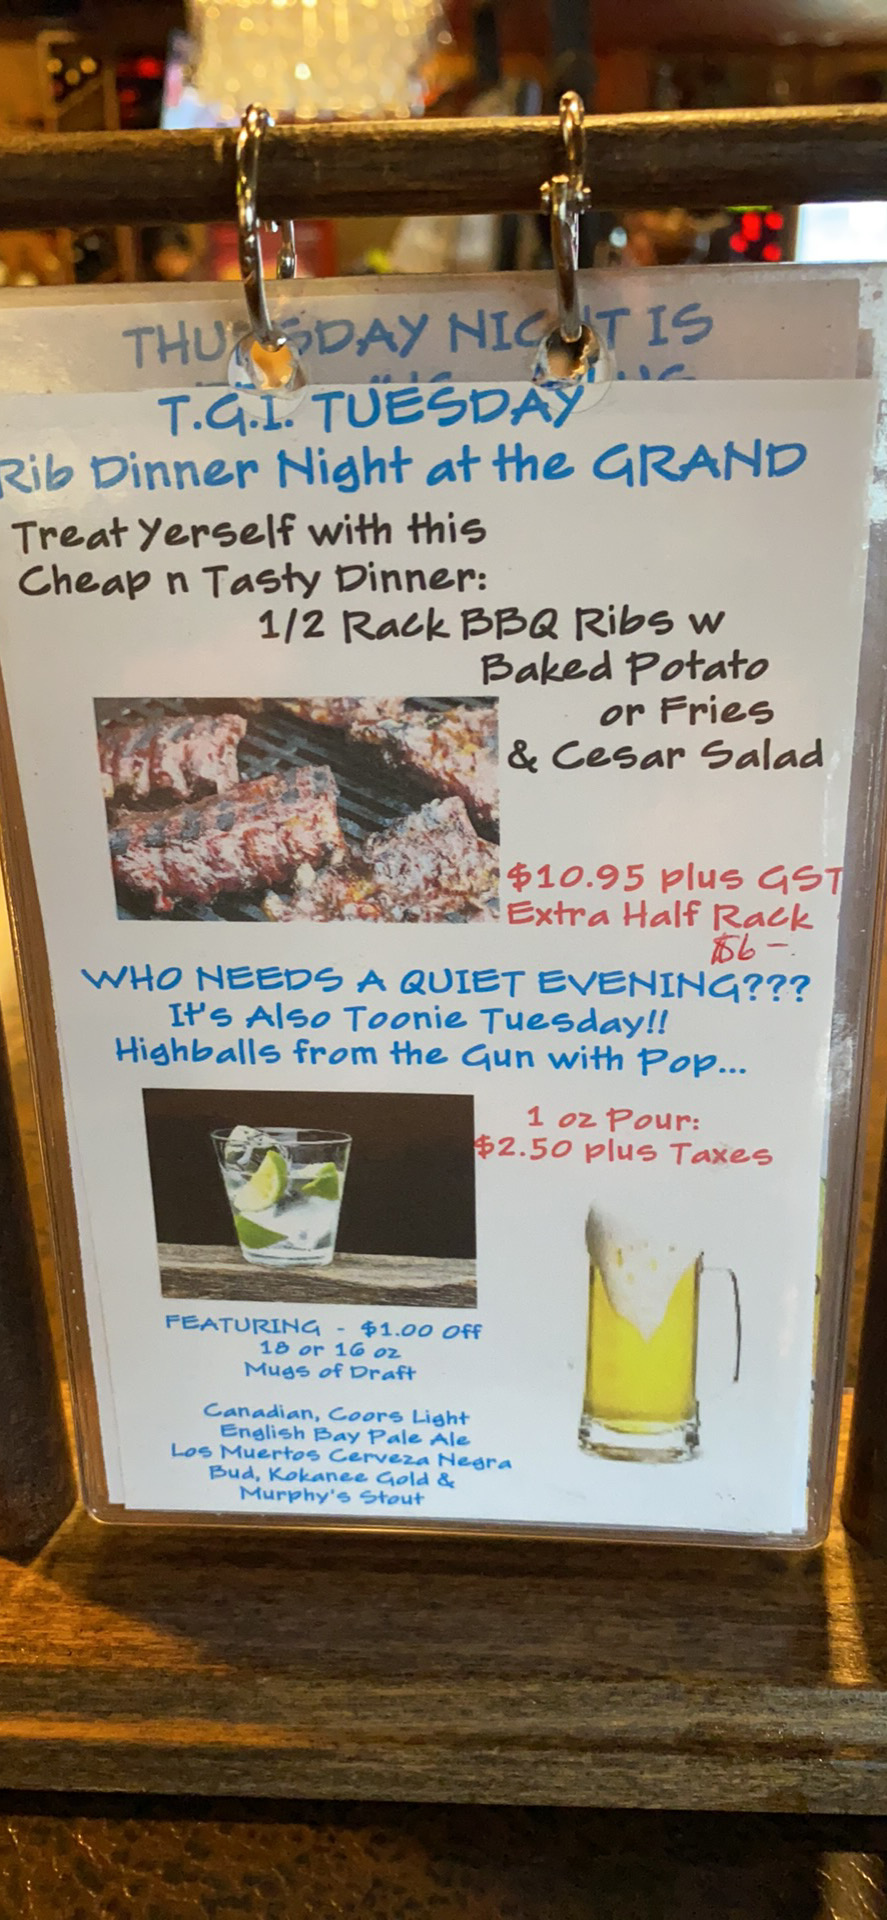 THURSDAY NIGHT IS
T.G.I. TUESDAY
Rib Dinner Night at the GRAND
Treat Yerself with this
Cheap n Tasty Dinner:
1/2 Rack BBQ Ribs w
Baked Potato
or Fries
& Cesar Salad
$10.95 plus GST
Extra Half Rack
$6-
WHO NEEDS A QUIET EVENING???
It's Also Toonie Tuesday!!
Highballs from the Gun with Pop...
1 oz Pour:
$2.50 plus Taxes
FEATURING - $1.00 Off
18 or 16 oz
Mugs of Draft
Canadian, Coors Light
English Bay Pale Ale
Los Muertos Cerveza Negra
Bud, Kokanee Gold &
Murphy's Stout